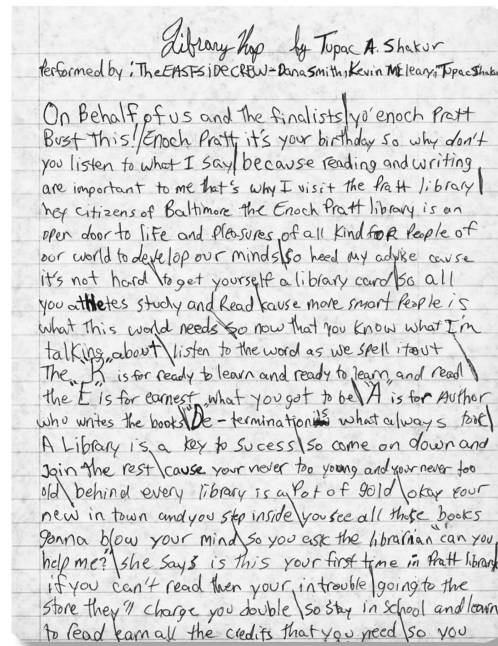 Library Rap by Tupac A. Shakur
Performed by: The EASTSIDE CREW - Dana Smith, Kevin McLeary, Tupac Shakur
On Behalf of us and the finalists\ yo' enoch Pratt
Bust this!/Enoch Pratt it's your birthday so why don't
you listen to what I say\ because reading and writing
are important to me that's why I visit the Pratt library\
hey citizens of Baltimore the Enoch Pratt library is an
open door to life and Pleasures of all kind for People of
our world to develop our minds\so heed my advise cause
it's not hard \to get yourself a library card\so all
you athletes study and Read\cause more smart People is
what This world needs\so now that you know what I'm
talking about\listen to the word as we spell it out
The "R" is for ready to learn and ready to learn and read\
the E is for earnest what you got to be\"A" is for Author
who writes the books\"De - termination is what always took\
A Library is a key to Sucess\so come on down and
Join the rest\cause your never too young and your never too
old\behind every library is a Pot of gold\okay your
new in town and you step inside\you see all those books
gonna blow your mind\so you ask the librarian "can you
help me?"\she says is this your first time in Pratt library
if you can't read then your in trouble\going to the
store they'll charge you double\so stay in school and learn
to read\earn all the credits that you need\so you